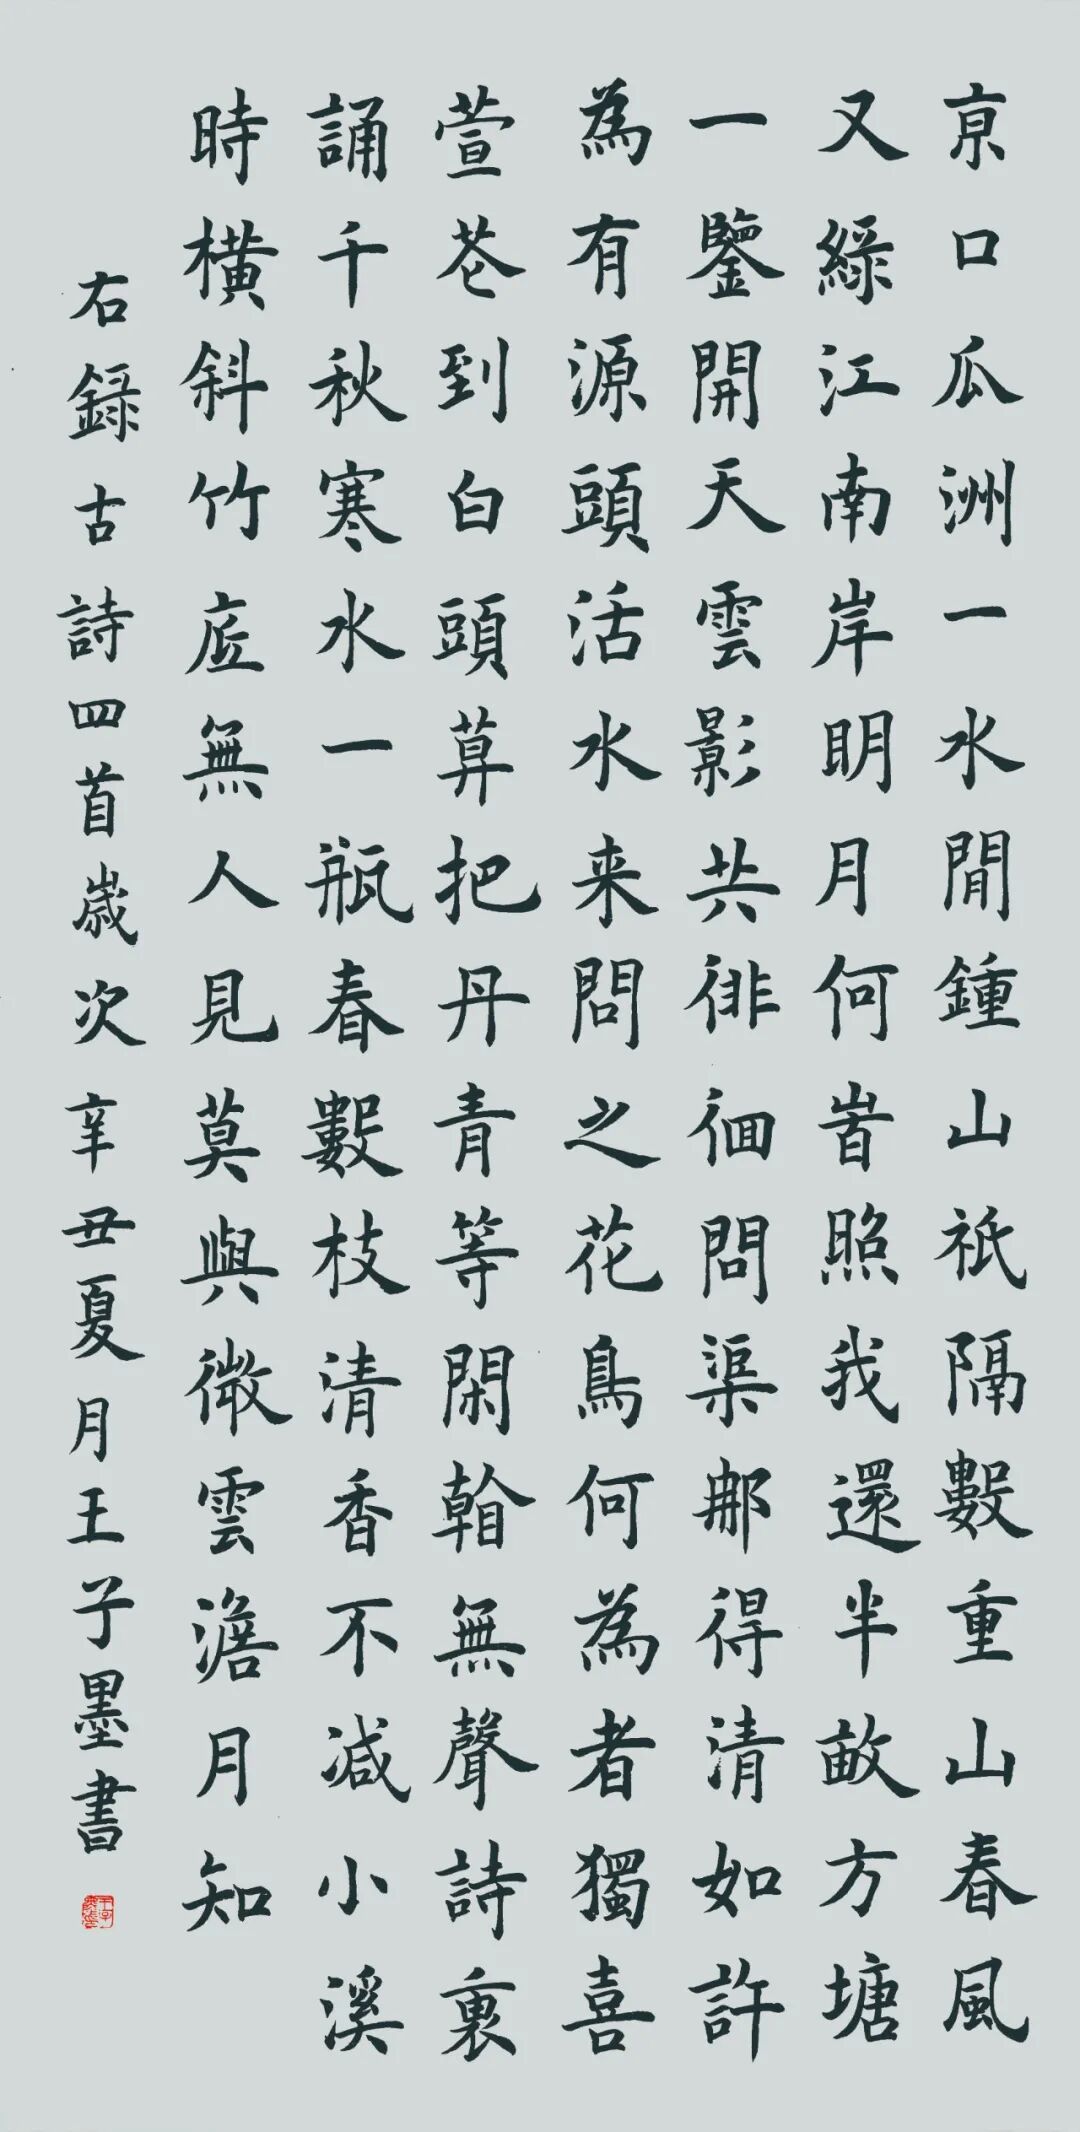 亰口瓜洲一水間鍾山祇隔數重山春風
又綠江南岸明月何旹照我還半畝方塘
一鑒開天雲影共徘徊問渠那得清如許
為有源頭活水来問之花鳥何為者獨喜
萱芲到白頭算把丹青等閑翰無聲詩裏
誦千秋寒水一瓶春數枝清香不減小溪
時橫斜竹底無人見莫與微雲澹月知
右錄古詩四首歲次辛丑夏月王子墨書